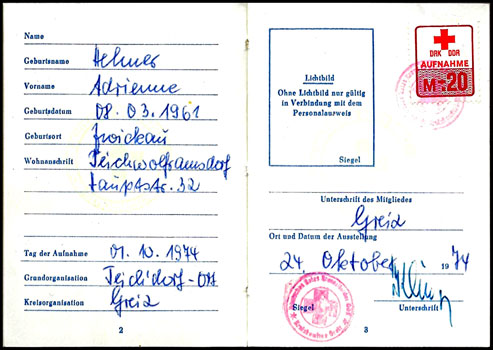 Name
Geburtsname Helmer
Vorname Adrienne
Geburtsdatum 08. 03. 1961
Geburtsort Zwickau
Wohnanschrift Teichwolframsdorf
Hauptstr. 32
Tag der Aufnahme 01. 10. 1974
Grundorganisation Teichdorf-Ort
Kreisorganisation Greiz
2
DRK DDR
AUFNAHME
M -.20
Lichtbild
Ohne Lichtbild nur gültig
in Verbindung mit dem
Personalausweis
Siegel
Unterschrift des Mitgliedes
Greiz
Ort und Datum der Ausstellung
24. Oktober 1974
Siegel
Unterschrift
3